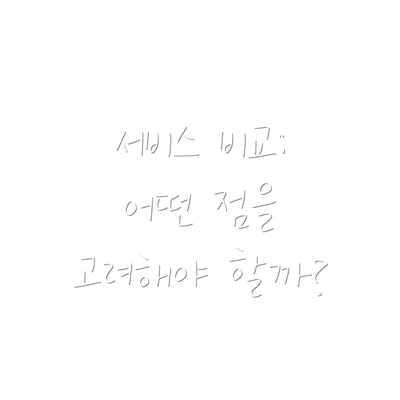 서비스 비교:
어떤 점을
고려해야 할까?